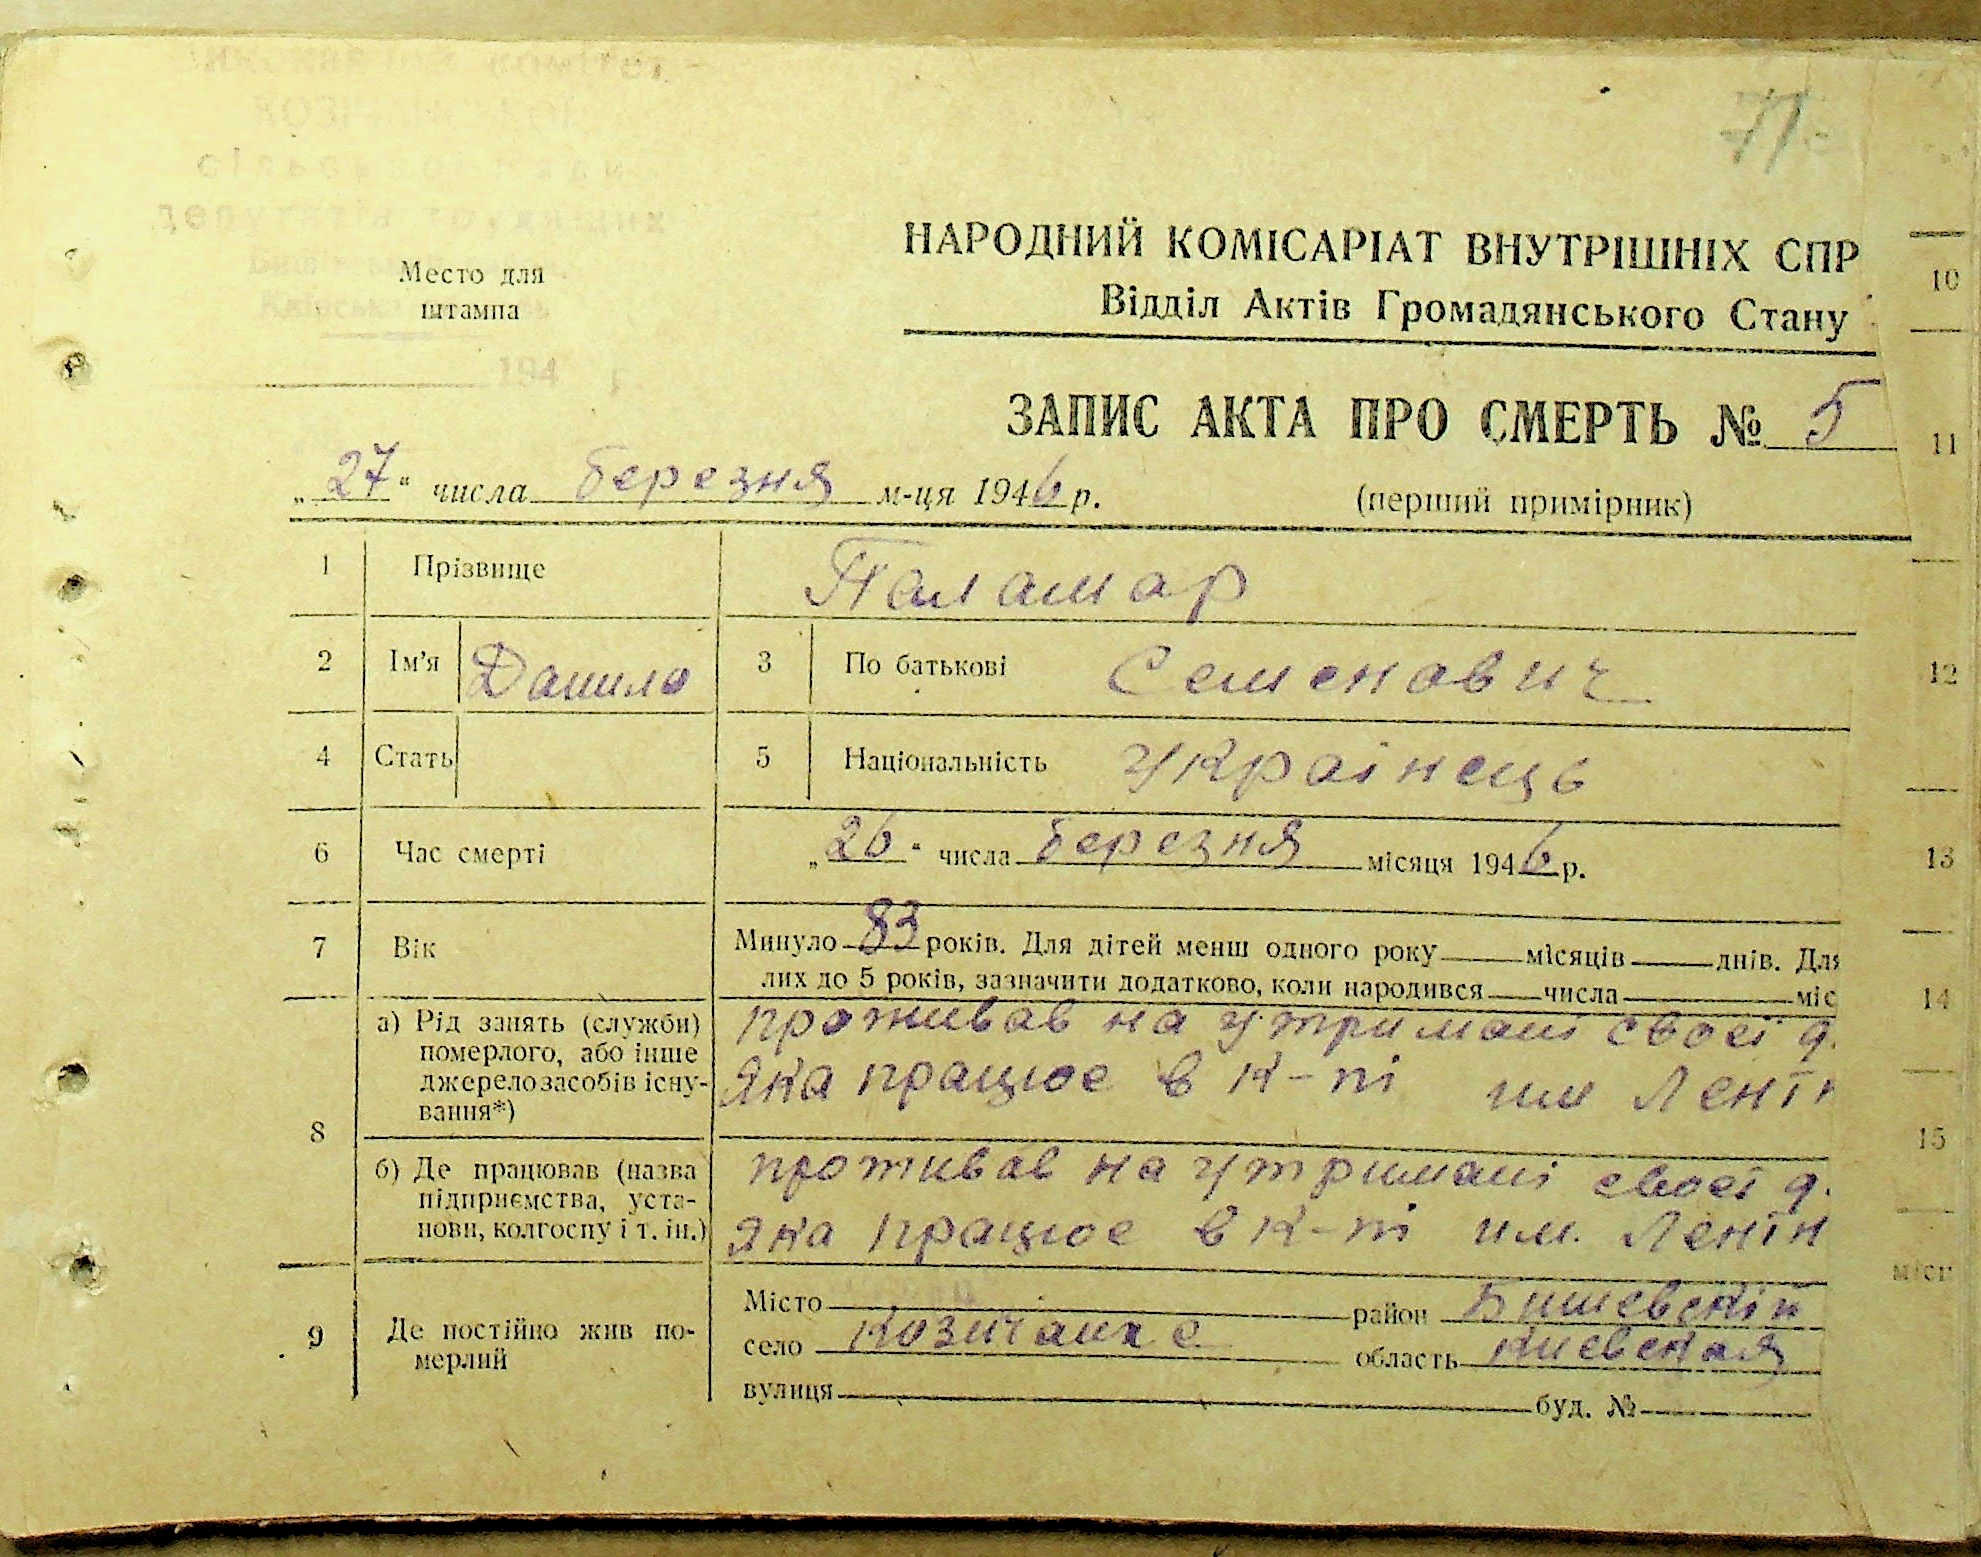 71
НАРОДНИЙ КОМІСАРІАТ ВНУТРІШНІХ СПР
Место для
штампа
Відділ Актів Громадянського Стану
194 р
ЗАПИС АКТА ПРО СМЕРТЬ № 5
„27“ числа березня м-ця 1946 р.
(перший примірник)
1 Прізвище Паламар
2 Ім'я Данило 3 По батькові Семенович
4 Стать 5 Національність Українець
6 Час смерті „26“ числа березня місяця 1946 р.
7 Вік Минуло 83 років. Для дітей менш одного року місяців днів. Для
лих до 5 років, зазначити додатково, коли народився числа міс
8 а) Рід занять (служби)
померлого, або інше
джерело засобів існу-
вання*)
проживав на утримані своєї д.
яка працює в к-пі им Ленін
б) Де працював (назва
підприємства, уста-
нови, колгоспу і т. ін.)
проживав на утримані своєї д.
яка працює в к-пі им. Ленін
9 Де постійно жив по-
мерлий
Місто район Бишевский
село Козичанке область Киевская
вулиця буд. №
10
11
12
13
14
15